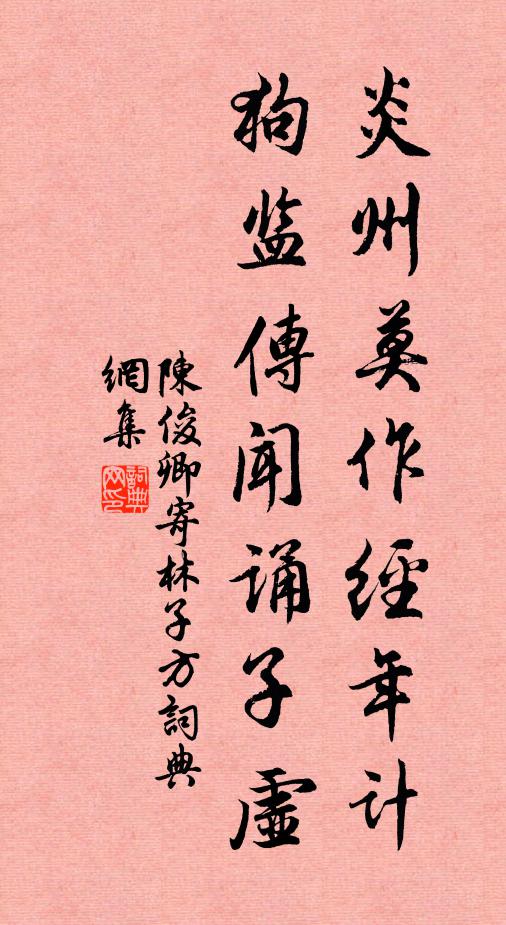 炎州莫作經年計
狗监傳闻诵子虛
陳俊卿寄林子方詞典
網集
詞典
网印